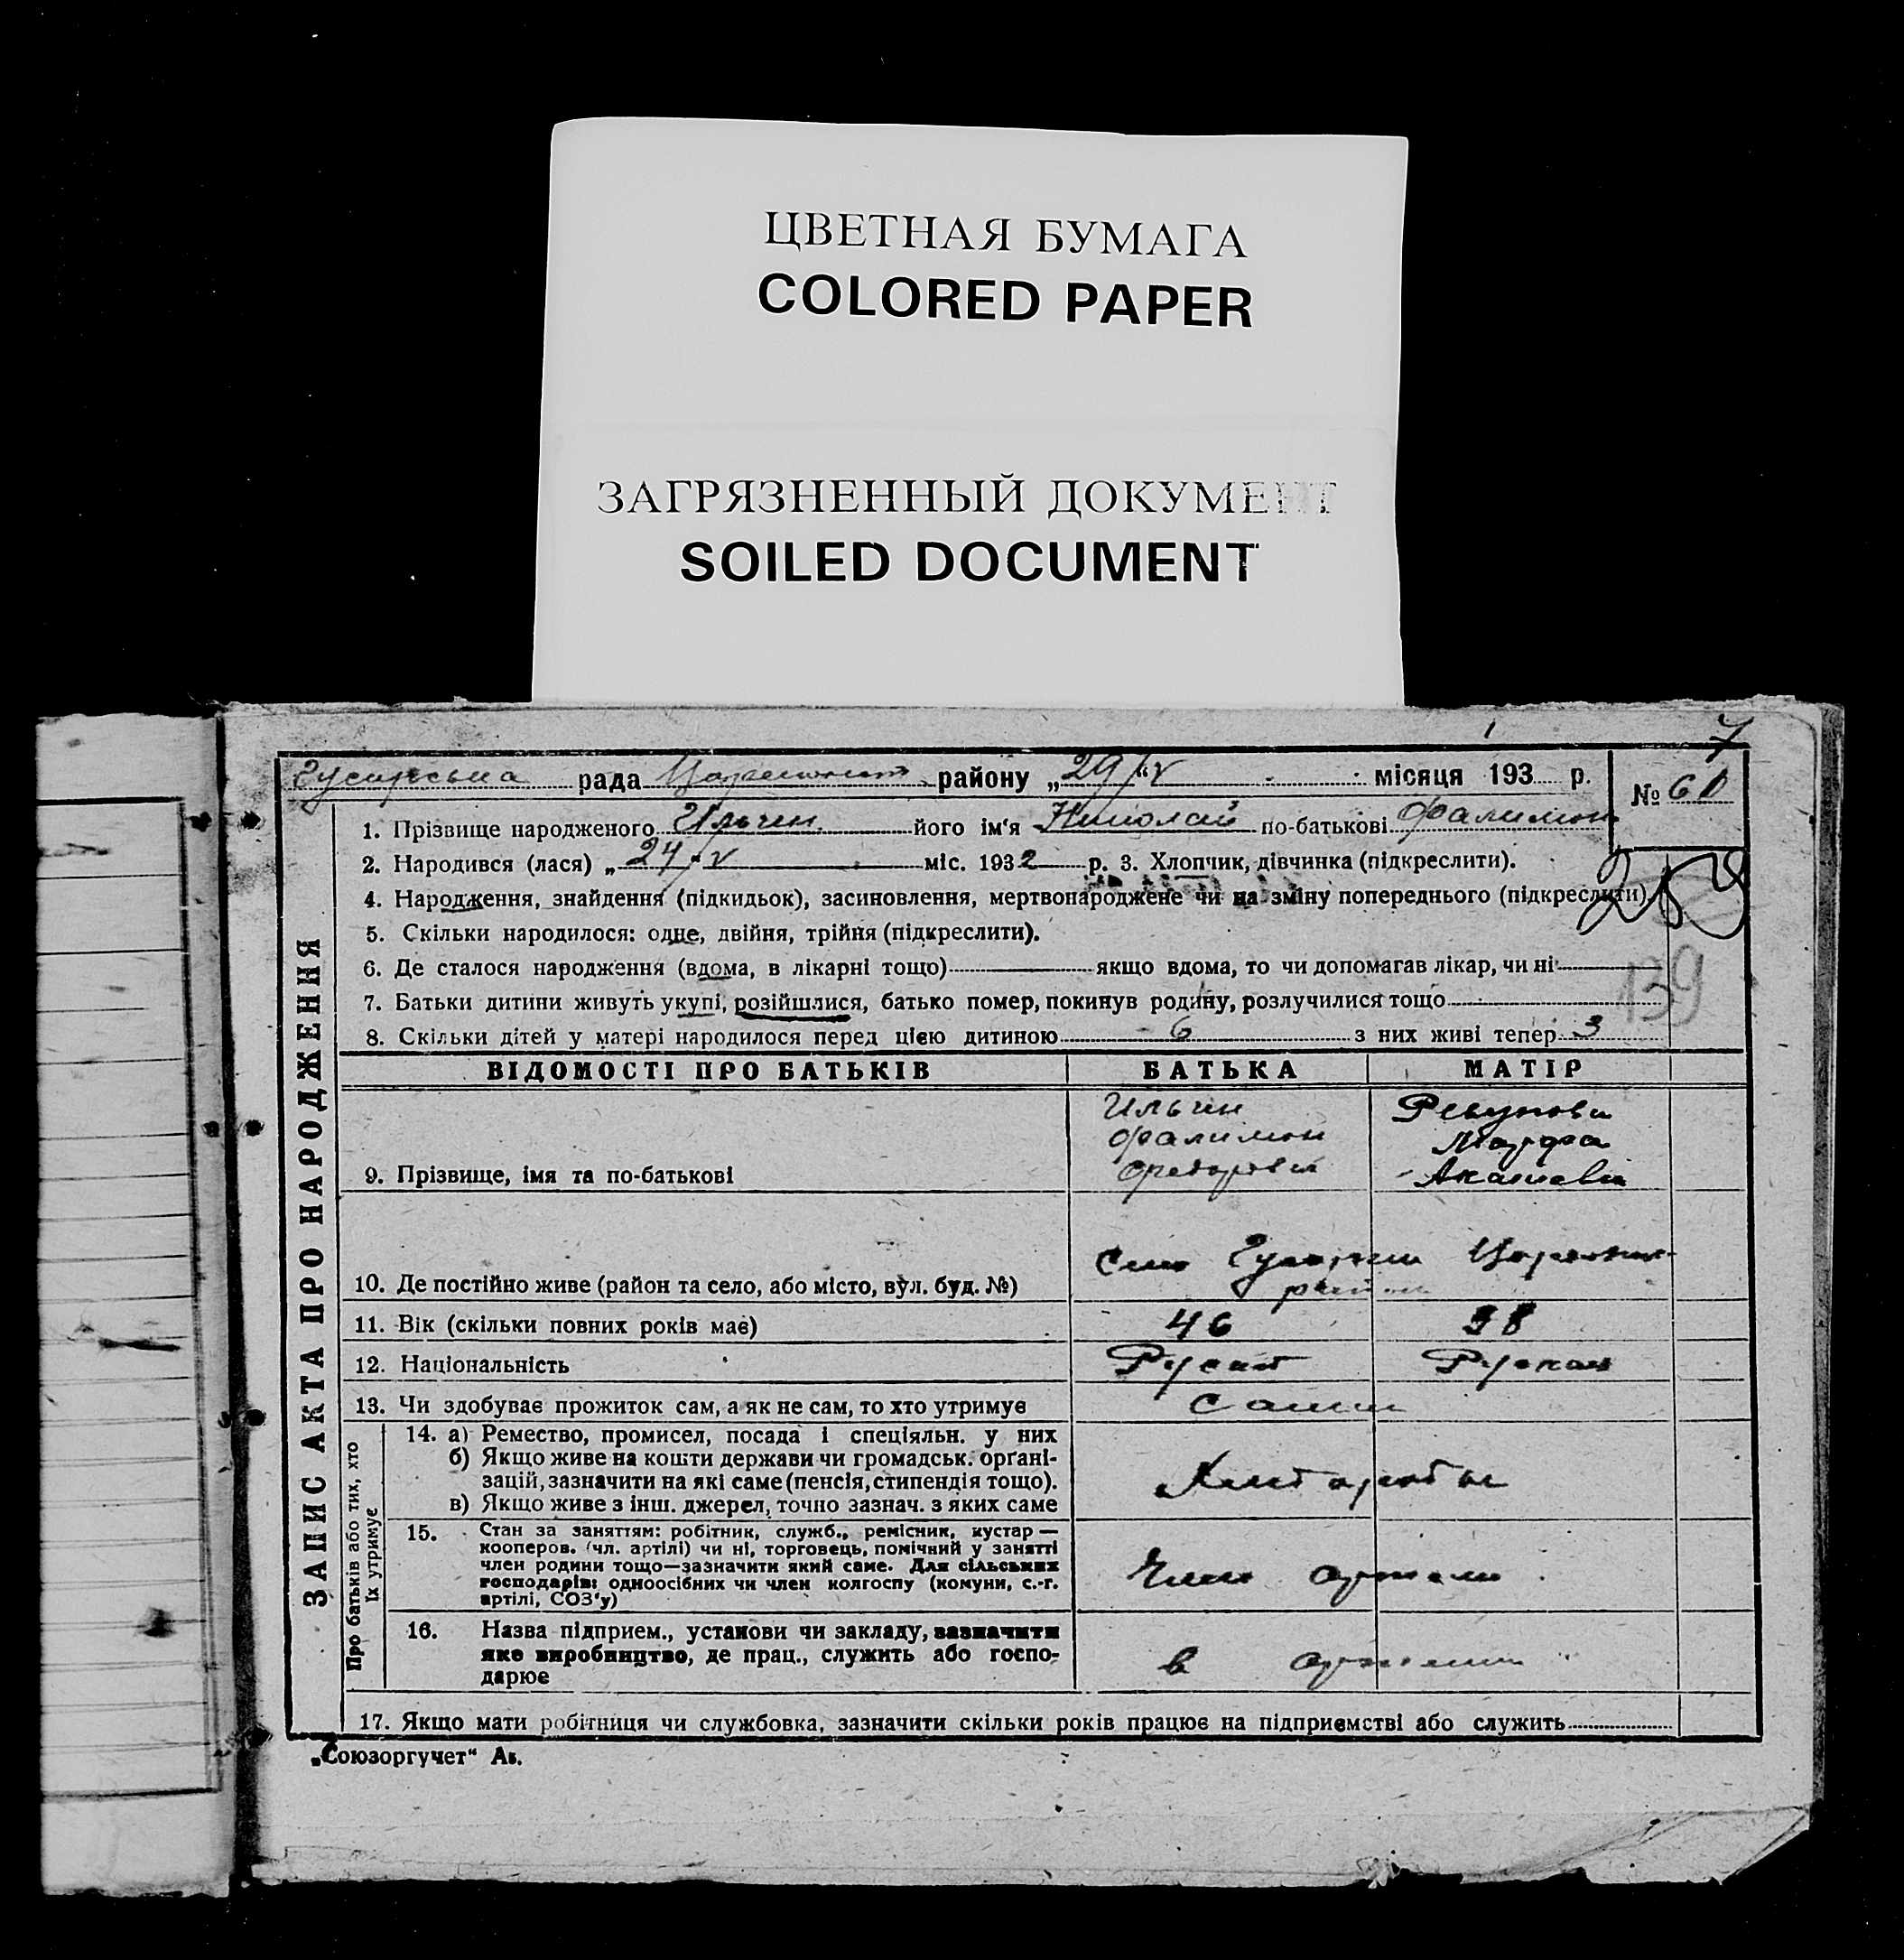 ЦВЕТНАЯ БУМАГА
COLORED PAPER
ЗАГРЯЗНЕННЫЙ ДОКУМЕНТ
SOILED DOCUMENT
7
рада району „29/V“ місяця 193 р. № 60
1. Прізвище народженого Ильчен його ім'я Николай по-батькові Фалимон
2. Народився (лася) „24/V міс. 1932 р. 3. Хлопчик, дівчинка (підкреслити).
4. Народження, знайдення (підкидьок), засиновлення, мертвонароджене чи на зміну попереднього (підкреслити).
5. Скільки народилося: одне, двійня, трійня (підкреслити).
6. Де сталося народження (вдома, в лікарні тощо) якщо вдома, то чи допомагав лікар, чи ні
139
7. Батьки дитини живуть укупі, розійшлися, батько помер, покинув родину, розлучилися тощо
8. Скільки дітей у матері народилося перед цією дитиною 6 з них живі тепер 3
ЗАПИС АКТА ПРО НАРОДЖЕННЯ
ВІДОМОСТІ ПРО БАТЬКІВ БАТЬКА МАТІР
Ильчен
Фалимон Марфа
9. Прізвище, імя та по-батькові
10. Де постійно живе (район та село, або місто, вул. буд. №) Село район
11. Вік (скільки повних років має) 46 38
12. Національність
13. Чи здобуває прожиток сам, а як не сам, то хто утримує Сами
Про батьків або тих, хто їх утримує
14. а) Ремество, промисел, посада і спеціяльн. у них
б) Якщо живе на кошти держави чи громадськ. орґані-
зацій, зазначити на які саме (пенсія, стипендія тощо).
в) Якщо живе з інш. джерел, точно зазнач. з яких саме
15. Стан за заняттям: робітник, служб., ремісник, кустар —
кооперов. (чл. артілі) чи ні, торговець, помічний у занятті
член родини тощо—зазначити який саме. Для сільських
господарів: одноосібних чи член колгоспу (комуни, с.-г.
артілі, СОЗ'у)
Член артели
16. Назва підприєм., установи чи закладу, зазначити
яке виробництво, де прац., служить або госпо-
дарює
в артели
17. Якщо мати робітниця чи службовка, зазначити скільки років працює на підприємстві або служить
„Союзоргучет“ Ав.